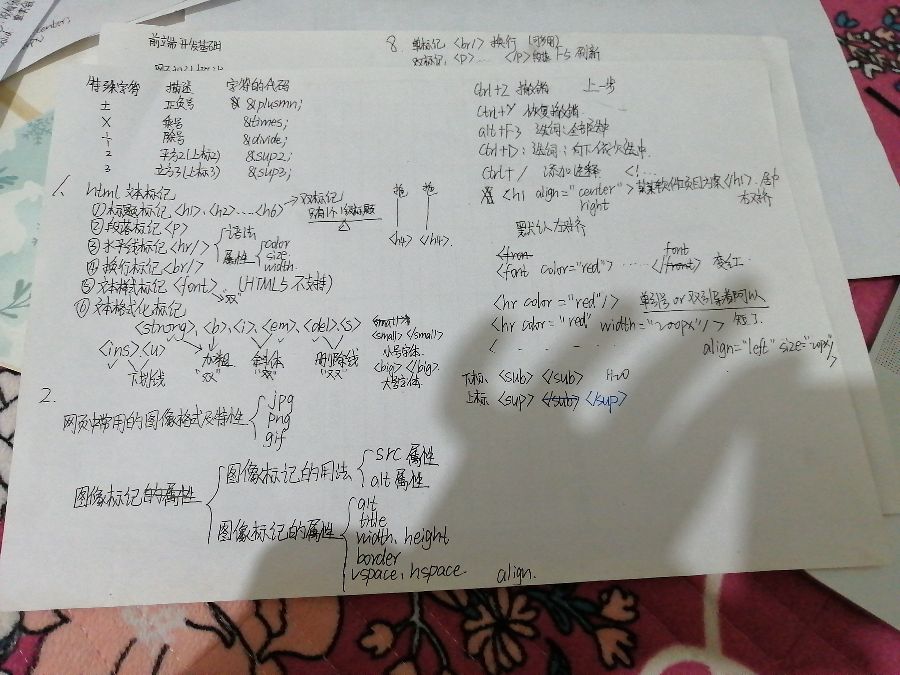 前端开发基础
8. 单标记 <br/> 换行 (可多用)
双标记: <p>... </p> 段落 F5 刷新
特殊字符 描述 字符的代码
± 正负号 &plusmn;
× 乘号 &times;
÷ 除号 &divide;
2 平方2(上标2) &sup2;
3 立方3(上标3) &sup3;
1、html 文本标记
①标题标记 <h1>、<h2>...<h6> 双标记
只有1个1级标题
②段落标记 <p>
<h4> </h4>.
③水平线标记 <hr/> 语法
属性 color
size
width.
④换行标记 <br/>
⑤文本样式标记 <font> "双" (HTML5 不支持)
⑥文本格式化标记
<strong>、<b>、<i>、<em>、<del>、<s>
<ins><u>
下划线
加粗 "双"
斜体 "双"
删除线 "双双"
<small> </small>
小号字体.
<big> </big>.
大号字体.
2.
网页中常用的图像格式及特性 jpg
png
gif
图像标记的属性
图像标记的用法 src 属性
alt 属性
图像标记的属性 alt
title
width、height
border
vspace、hspace.
align.
Ctrl+Z 撤销 上一步
Ctrl+Y 恢复撤销
alt+F3 选词: 全部选中
Ctrl+D: 选词: 向下依次选中.
Ctrl+/ 添加注释 <!...
<h1 align="center"> 某某软件项目方案</h1>. 居中
right 右对齐
默认左对齐
<fron font
<font color="red"> ...... </front> 变红.
<hr color="red"/> 单引号 or 双引号都可以
<hr color="red" width="200px"/> 短了
< - - - - align="left" size="20px"/>
下标: <sub> </sub> H2O
上标: <sup> </sub> </sup>